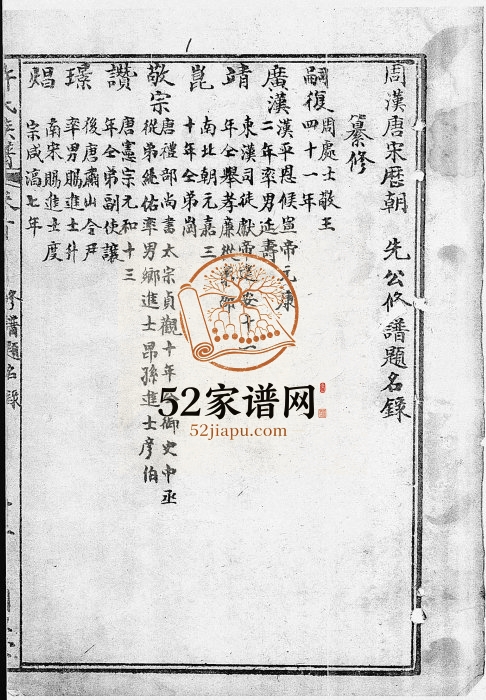 周漢唐宋歷朝 先公修譜題名錄
纂修
嗣復 周處士敬王
四十一年
廣漢 漢平恩候宣帝元康
二年率男延壽
靖 東漢司徒獻帝建安十一
年仝舉孝廉從
崑 南北朝元嘉三
十年仝弟崗
敬宗 唐禮部尚書太宗貞觀十年仝御史中丞
從弟繼佑率男鄉進士昂孫進士彦伯
讚 唐憲宗元和十三
年仝弟副使讓
璟 後唐肅山令尹
率男賜進士升
焻 南宋賜進士度
宗咸淳七年
修譜題名錄
52家谱网
52jiapu.com